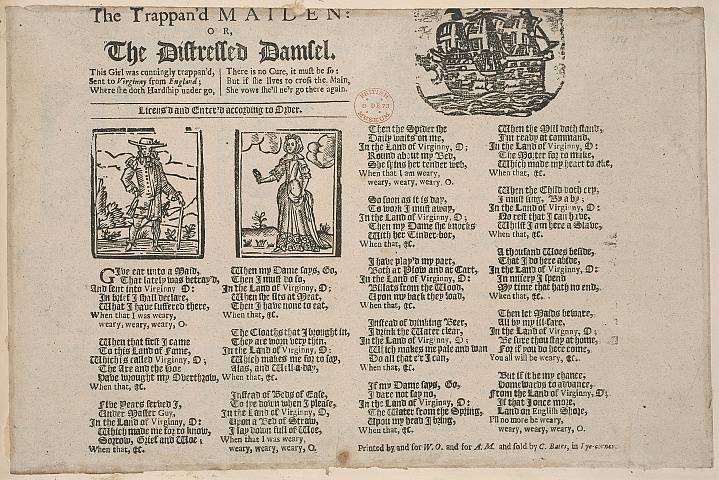 The Trappan'd MAIDEN:
OR,
The Distressed Damsel.
This Girl was cunningly trappan'd,
Sent to Virginny from England;
Where she doth Hardship under go,
There is no Cure, it must be so;
But if she lives to cross the Main,
She vows she'll ne'r go there again.
Licens'd and Enter'd according to Order.
BRITISH
MUSEUM
GIve ear unto a Maid,
That lately was betray'd,
And sent into Virginny O:
In brief I shall declare,
What I have suffered there,
When that I was weary,
weary, weary, weary, O.
When that first I came
To this Land of Fame,
Which is called Virginny, O;
The Axe and the Hoe
Have wrought my Overthrow,
When that, &c.
Five Years served I,
Under Master Guy,
In the Land of Virginny, O:
Which made me for to know,
Sorrow, Grief and Woe;
When that, &c.
When my Dame says, Go,
Then I must do so,
In the Land of Virginny, O;
When she sits at Meat,
Then I have none to eat,
When that, &c.
The Cloaths that I brought in,
They are worn very thin,
In the Land of Virginny, O:
Which makes me for to say,
Alas, and Well-a-day,
When that, &c.
Instead of Beds of Ease,
To lye down when I please,
In the Land of Virginny, O,
Upon a Bed of Straw,
I lay down full of Woe,
When that I was weary,
weary, weary, weary, O.
Then the Spider she
Daily waits on me,
In the Land of Virginny, O;
Round about my Bed,
She spins her tender web,
When that I am weary,
weary, weary, weary O.
So soon as it is day,
To work I must away,
In the Land of Virginny, O;
Then my Dame she knocks
With her Tinder-box,
When that, &c.
I have play'd my part,
Both at Plow and at Cart,
In the Land of Virginny, O:
Billats from the Wood,
Upon my back they load,
When that, &c.
Instead of drinking Beer,
I drink the Water clear,
In the Land of Virginny, O;
Which makes me pale and wan
Do all that e'r I can,
When that, &c.
If my Dame says, Go,
I dare not say no,
In the Land of Virginny, O;
The Water from the Spring,
Upon my head I bring,
When that, &c.
When the Mill doth stand,
I'm ready at command,
In the Land of Virginny, O:
The Morter for to make,
Which made my heart to ake,
When that, &c.
When the Child doth cry,
I must sing, By a by;
In the Land of Virginny, O:
No rest that I can have,
Whilst I am here a Slave,
When that, &c.
A thousand Woes beside,
That I do here abide,
In the Land of Virginny, O:
In misery I spend
My time that hath no end,
When that, &c.
Then let Maids beware,
All by my ill-fare,
In the Land of Virginny, O;
Be sure thou stay at home,
For if you do here come,
You all will be weary, &c.
But if it be my chance,
Homewards to advance,
From the Land of Virginny, O;
If that I once more,
Land on English Shore,
I'll no more be weary,
weary, weary, weary, O.
Printed by and for W. O. and for A. M. and sold by C. Bates, in Pye-corner.